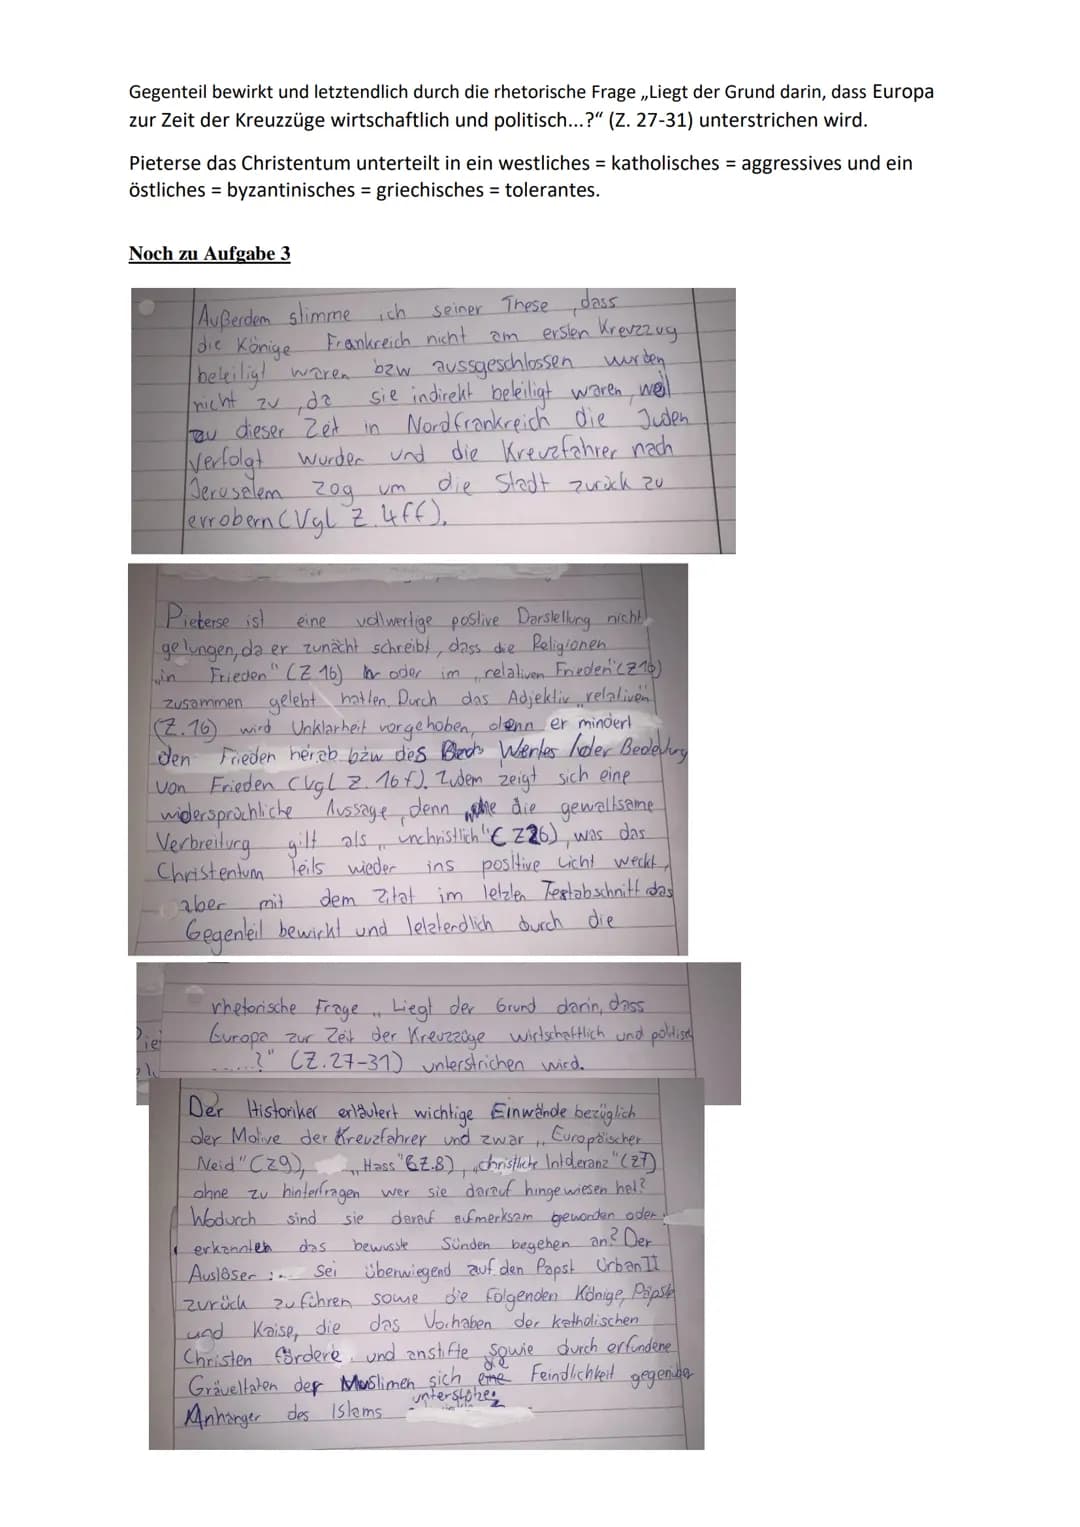 Gegenteil bewirkt und letztendlich durch die rhetorische Frage „Liegt der Grund darin, dass Europa
zur Zeit der Kreuzzüge wirtschaftlich und politisch...?“ (Z. 27-31) unterstrichen wird.
Pieterse das Christentum unterteilt in ein westliches = katholisches = aggressives und ein
östliches = byzantinisches = griechisches = tolerantes.
Noch zu Aufgabe 3
Außerdem stimme ich seiner These, dass
die Könige Frankreich nicht am ersten Kreuzzug
beteiligt waren bzw aussgeschlossen wurden
nicht zu, da sie indirekt beteiligt waren, weil
zu dieser Zeit in Nordfrankreich die Juden
verfolgt wurden und die Kreuzfahrer nach
Jerusalem zog um die Stadt zurück zu
errobern (Vgl Z. 4ff).
Pieterse ist eine vollwertige postive Darstellung nicht
gelungen, da er zunächt schreibt, dass die Religionen
„in Frieden" (Z 16) oder im „relativen Frieden" (Z16)
zusammen gelebt hatten. Durch das Adjektiv „relativen"
(Z. 16) wird Unklarheit vorgehoben, denn er mindert
den Frieden herab bzw des Wertes / der Bedeutung
von Frieden (Vgl Z. 16 f). Zudem zeigt sich eine
widersprüchliche Aussage, denn die gewaltsame
Verbreitung gilt als „unchristlich" (Z26), was das
Christentum teils wieder ins positive Licht weckt,
aber mit dem Zitat im letzten Textabschnitt das
Gegenteil bewirkt und letztendlich durch die
rhetorische Frage „Liegt der Grund darin, dass
Europa zur Zeit der Kreuzzüge wirtschaftlich und politisch
......?" (Z.27-31) unterstrichen wird.
Der Historiker erläutert wichtige Einwände bezüglich
der Motive der Kreuzfahrer und zwar „Europäischer
Neid" (Z9), „Hass" (Z.8), „christliche Intoleranz" (Z7)
ohne zu hinterfragen wer sie darauf hingewiesen hat?
Wodurch sind sie darauf aufmerksam geworden oder
erkannten das bewusste Sünden begehen an? Der
Auslöser sei überwiegend auf den Papst Urban II
zurück zu führen sowie die folgenden Könige, Päpste
und Kaise, die das Vorhaben der katholischen
Christen fördere und anstifte sowie durch erfundene
Gräueltaten der Muslimen sich die Feindlichkeit gegenüber
Anhänger des Islams